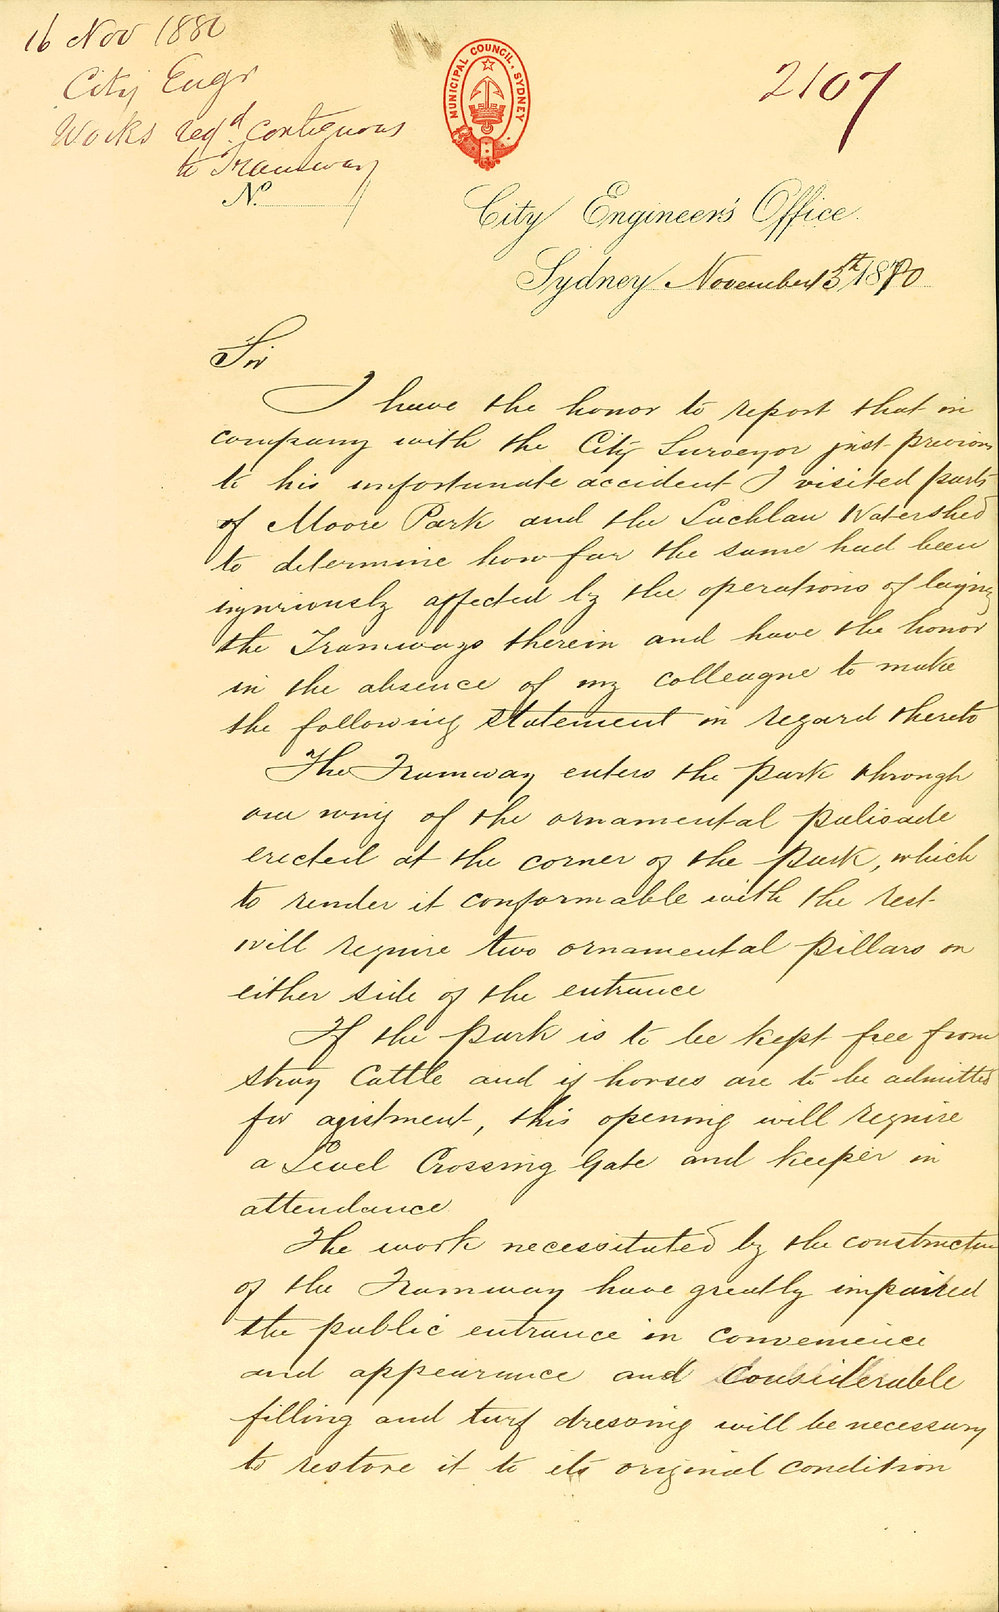 16 Nov 1880
City Engr
Works reqd. contiguous
to Tramway
No.
MUNICIPAL COUNCIL. SYDNEY
2107
City Engineer's Office.
Sydney November 15th 1880
Sir
I have the honor to report that in
company with the City Surveyor just previous
to his unfortunate accident I visited parts
of Moore Park and the Lachlan Watershed
to determine how far the same had been
injuriously affected by the operations of laying
the Tramways therein and have the honor
in the absence of my colleague to make
the following statement in regard thereto
The Tramway enters the park through
one wing of the ornamental palisade
erected at the corner of the Park, which
to render it conformable with the rest
will require two ornamental pillars on
either side of the entrance
If the park is to be kept free from
stray Cattle and if horses are to be admitted
for agistment, this opening will require
a Level Crossing Gate and keeper in
attendance
The work necessitated by the construction
of the Tramway have greatly impaired
the public entrance in convenience
and appearance and considerable
filling and turf dressing will be necessary
to restore it to its original condition